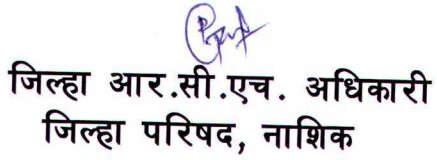 जिल्हा आर.सी.एच. अधिकारी
जिल्हा परिषद, नाशिक